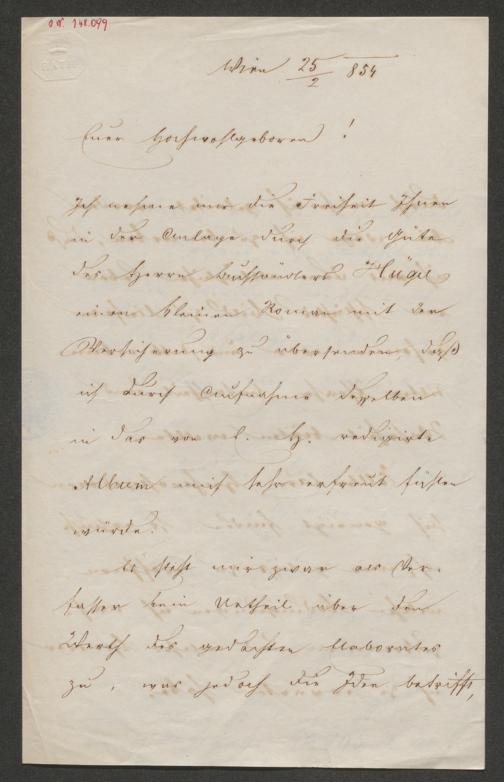 Wien 25/2 854
Euer Hochwohlgeboren!
Ich nehme mir die Freiheit Ihnen
in der Anlage durch die Güte
des Herrn Buchhändlers Hügel
einen kleinen Roman mit der
Versicherung zu übersenden, daß
ich durch Aufnahme desselben
in das von E. H. redigirte
Album mich sehr erfreut fühlen
würde.
Es steht mir zwar als Ver-
fasser kein Urtheil über den
Werth des gedachten Elaborates
zu, was jedoch die Idee betrifft,